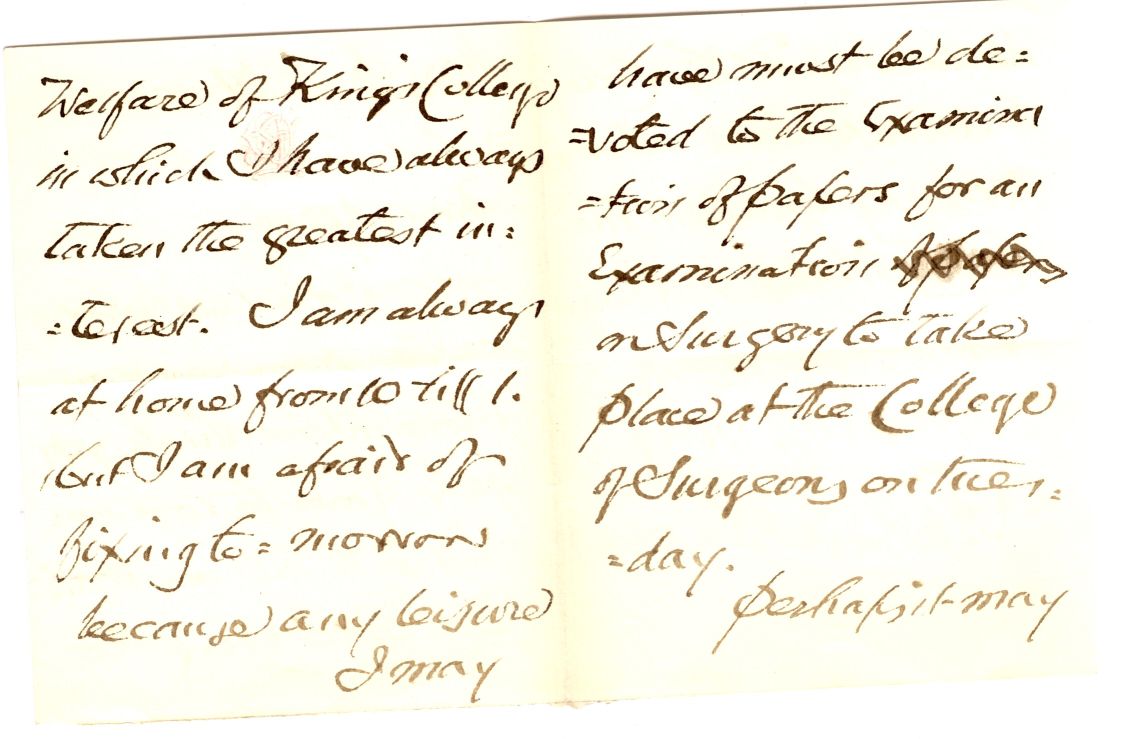 Welfare of King's College
in which I have always
taken the greatest in:
=terest. I am always
at home from 10 till 1.
but I am afraid of
fixing to=morrow
because any leisure
I may
have must be de=
=voted to the Examina
=tion of papers for an
Examination of papers
on Surgery to take
place at the College
of Surgeons on tues:
=day.
Perhaps it may